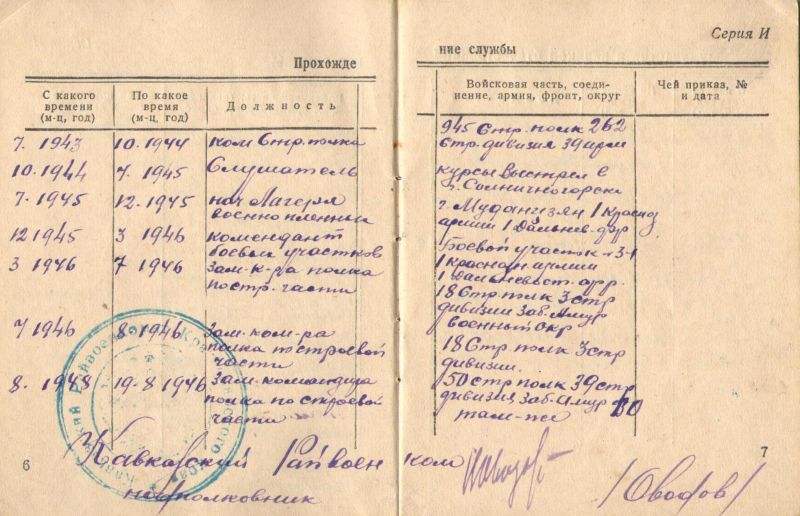 Серия И
Прохождение службы
С какого времени (м-ц, год)
По какое время (м-ц, год)
Должность
Войсковая часть, соединение, армия, фронт, округ
Чей приказ, № и дата
7. 1943 10. 1944 ком Стр. полка 945 Стр. полк 262
Стр. дивизия 39 арм
10. 1944 7. 1945 Слушатель курсы Выстрел в
г. Солничногорске
7. 1945 12. 1945 нач Лагеря г. Муданзян 1 Красноз
военно пленных армии 1 Дальнев. фр
12 1945 3 1946 комендант Боевой участок
боевых участков 1 красноз армии
3 1946 7 1946 Зам. к-ра полка 1 Дальневост. фр.
по стр. части 18 Стр. полк 3 стр
дивизии Заб. Амур
военный окр
7 1946 8 1946 Зам. ком-ра 18 Стр. полк 3 стр
полка по строевой дивизии.
части
8. 1948 19-8 1946 Зам. командира 50 стр полк 39 стр
полка по строевой дивизия Заб. Амур ВО
части там-же
Кавказский Райвоенком
подполковник
6
7